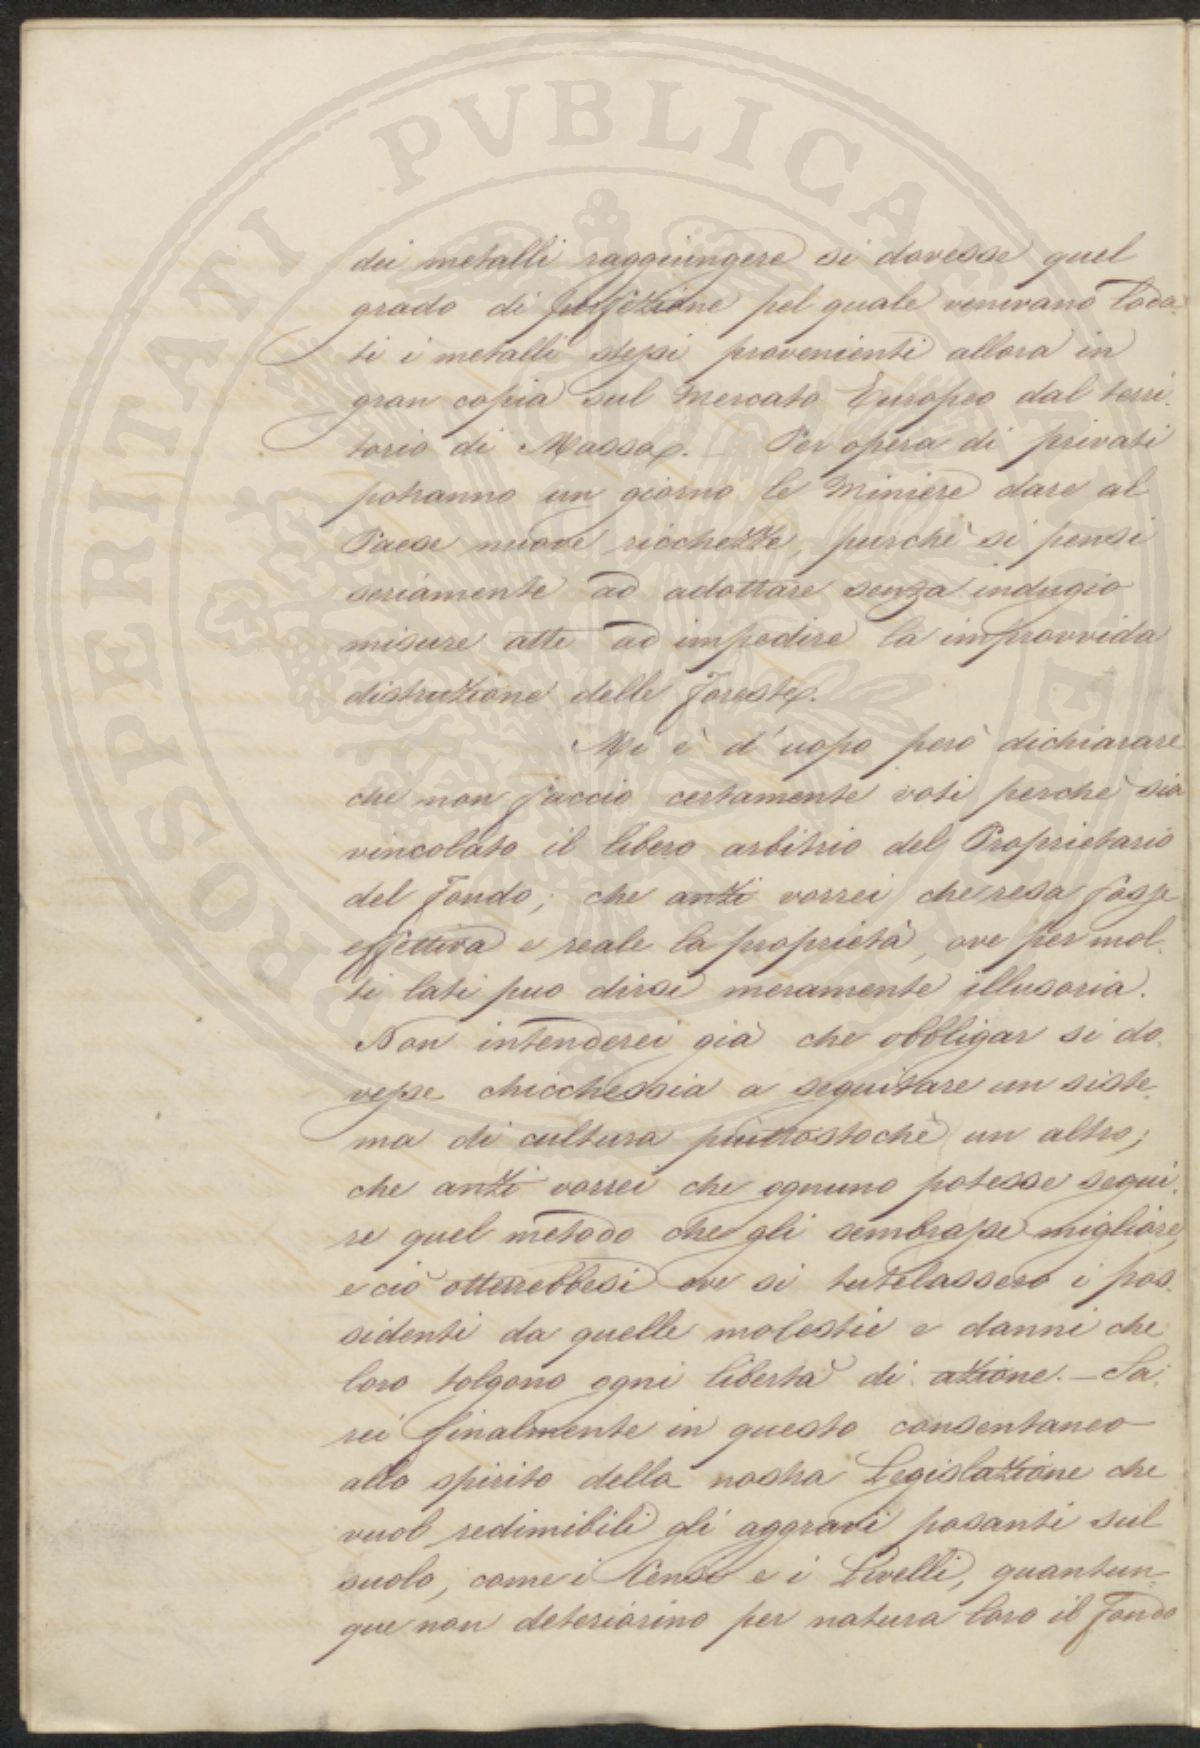 PROSPERITATI PVBLICAE
dei metalli raggiungere si dovesse quel
grado di perfezione pel quale venivano loda-
ti i metalli stessi provenienti allora in
gran copia sul Mercato Europeo dal terri-
torio di Massa. — Per opera di privati
potranno un giorno le Miniere dare al
Paese nuove ricchezze, purchè si pensi
seriamente ad adottare senza indugio
misure atte ad impedire la improvvida
distruzione delle foreste.
Mi è d'uopo però dichiarare
che non faccio certamente voti perchè sia
vincolato il libero arbitrio del Proprietario
del fondo; che anzi vorrei che resa fosse
effettiva e reale la proprietà, ove per mol-
ti lati puo dirsi meramente illusoria.
Non intenderei già che obbligar si do-
vesse chicchessia a seguitare un siste-
ma di cultura piuttostochè un altro;
che anzi vorrei che ognuno potesse segui-
re quel metodo che gli sembrasse migliore,
e ciò otterrebbesi ove si tutelassero i pos-
sidenti da quelle molestie e danni che
loro tolgono ogni libertà di azione. — Sa-
rei finalmente in questo consentaneo
allo spirito della nostra Legislazione che
vuol redimibili gli aggravi posanti sul
suolo, come i Censi e i Livelli, quantun-
que non deteriorino per natura loro il fondo